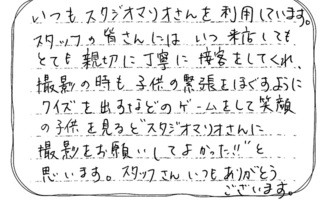 いつもスタジオマリオさんを利用しています。
スタッフの皆さんには いつ来店しても
とても親切に丁寧に接客をしてくれ、
撮影の時も子供の緊張をほぐすように
クイズを出すなどのゲームをして笑顔
の子供を見ると“スタジオマリオさんに
撮影をお願いしてよかった!!”と
思います。スタッフさんいつもありがとう
ございます。